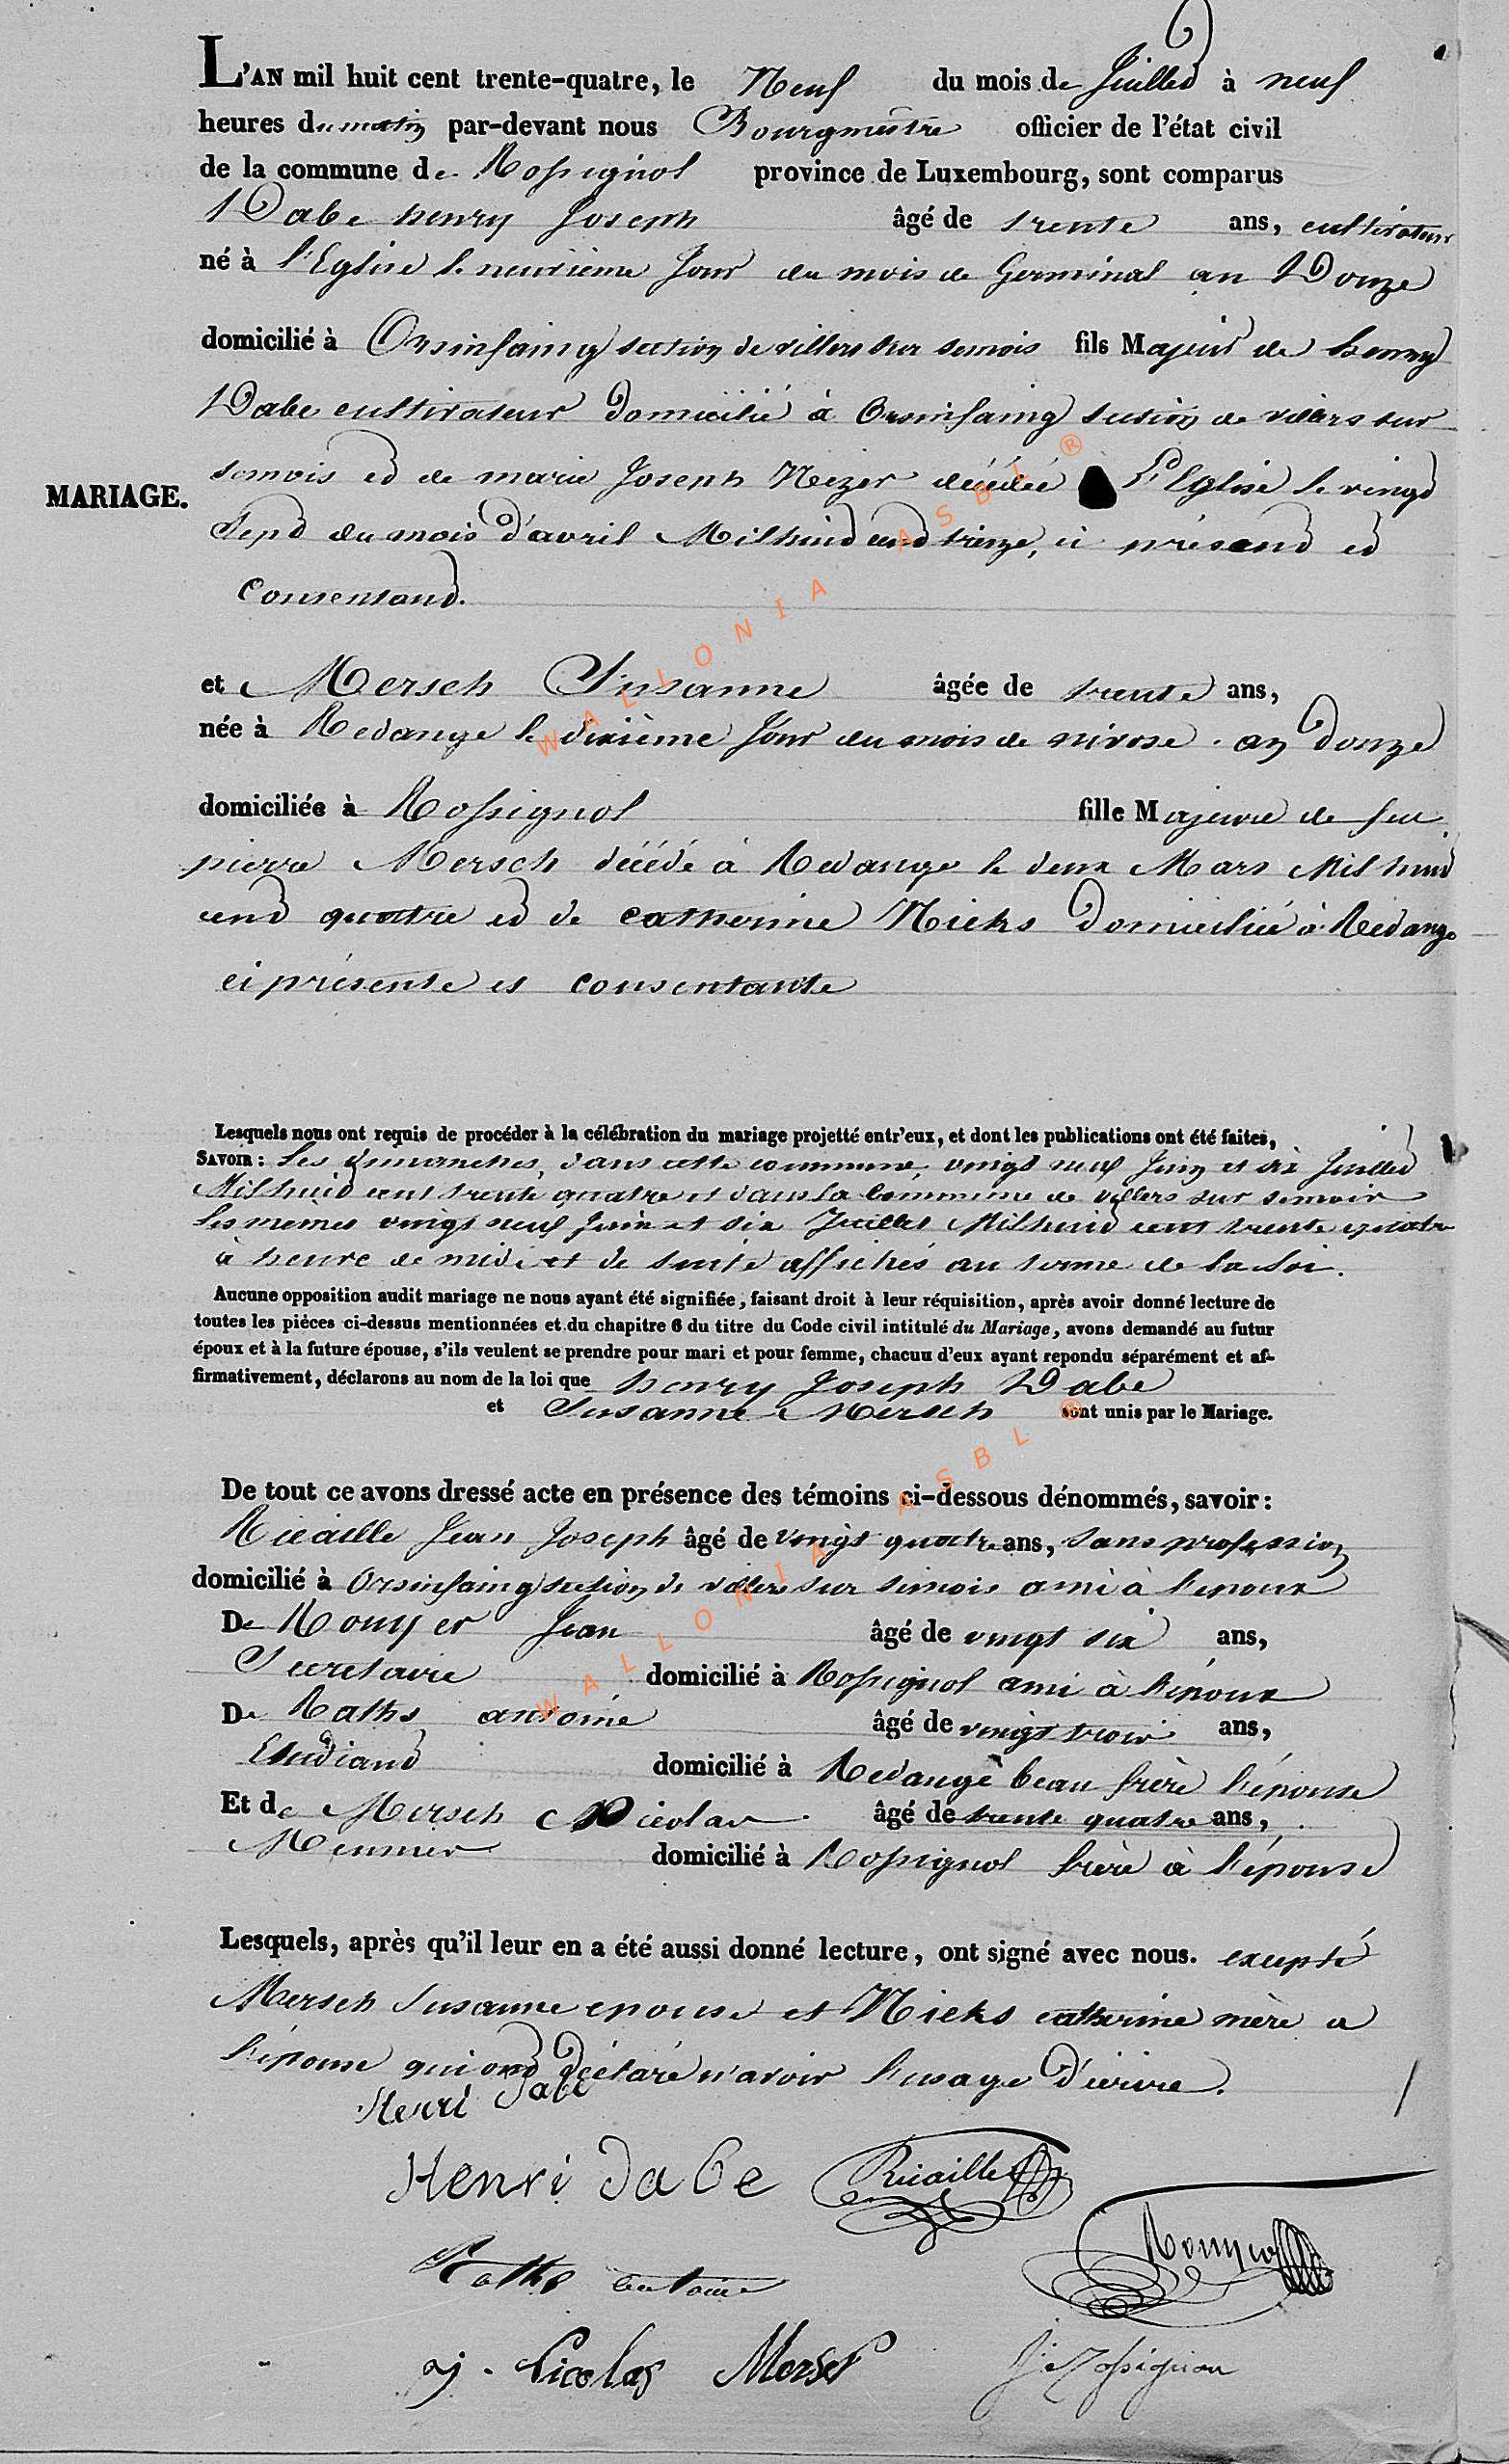 L'AN mil huit cent trente-quatre, le Neuf du mois de Juillet à neuf
heures du matin par-devant nous Bourgmestre officier de l'état civil
de la commune de Rossignol province de Luxembourg, sont comparus
Dabe henry Joseph âgé de trente ans, cultivateur
né à l'Eglise le neuvième Jour du mois de Germinal an Douze
domicilié à Orsinfaing section de villers sur semois fils Majeur de henry
Dabe cultivateur Domicilié à Orsinfaing section de villers sur
MARIAGE.
semois et de marie Joseph Nezer décédée à L'Eglise le vingt
Sept du mois d'avril Mil huit cent treize, ci présent et
Consentant.
et Mersch Susanne âgée de trente ans,
née à Redange le dixième Jour du mois de nivose an Douze
domiciliée à Rossignol fille Majeure de feu
pierre Mersch décédé à Redange le deux Mars Mil huit
cent quatre et de catherine Nicks Domiciliée à Redange
ci présente et consentante
Lesquels nous ont requis de procéder à la célébration du mariage projetté entr'eux, et dont les publications ont été faites,
SAVOIR : Les dimanches, dans cette commune, vingt neuf Juin et six Juillet
Mil huit cent trente quatre et dans la Commune de villers sur semois
les mêmes vingt neuf Juin et six Juillet Mil huit cent trente quatre
à heure de midi et de suite affichés au terme de la loi.
Aucune opposition audit mariage ne nous ayant été signifiée, faisant droit à leur réquisition, après avoir donné lecture de
toutes les pièces ci-dessus mentionnées et du chapitre 6 du titre du Code civil intitulé du Mariage, avons demandé au futur
époux et à la future épouse, s'ils veulent se prendre pour mari et pour femme, chacun d'eux ayant repondu séparément et af-
firmativement, déclarons au nom de la loi que henry Joseph Dabe
et Susanne Mersch sont unis par le Mariage.
De tout ce avons dressé acte en présence des témoins ci-dessous dénommés, savoir :
Ricaille Jean Joseph âgé de vingt quatre ans, sans profession
domicilié à Orsinfaing section de villers sur semois ami à l'epoux
De Rouyer Jean âgé de vingt six ans,
Secretaire domicilié à Rossignol ami à l'époux
De Raths antoine âgé de vingt trois ans,
Etudiant domicilié à Redange beau frère l'épouse
Et de Mersch Nicolas âgé de trente quatre ans,
Meunier domicilié à Rossignol frère à l'épouse
Lesquels, après qu'il leur en a été aussi donné lecture, ont signé avec nous. excepté
Mersch Susanne epouse et Nicks catherine mère a
l'épouse qui ont déclaré n'avoir l'usage d'écrire.
Henri Dabe
Henri Dabe Ricaille
Raths antoine Rouyer
Nicolas Mersch
WALLONIA ASBL ®
WALLONIA ASBL ®